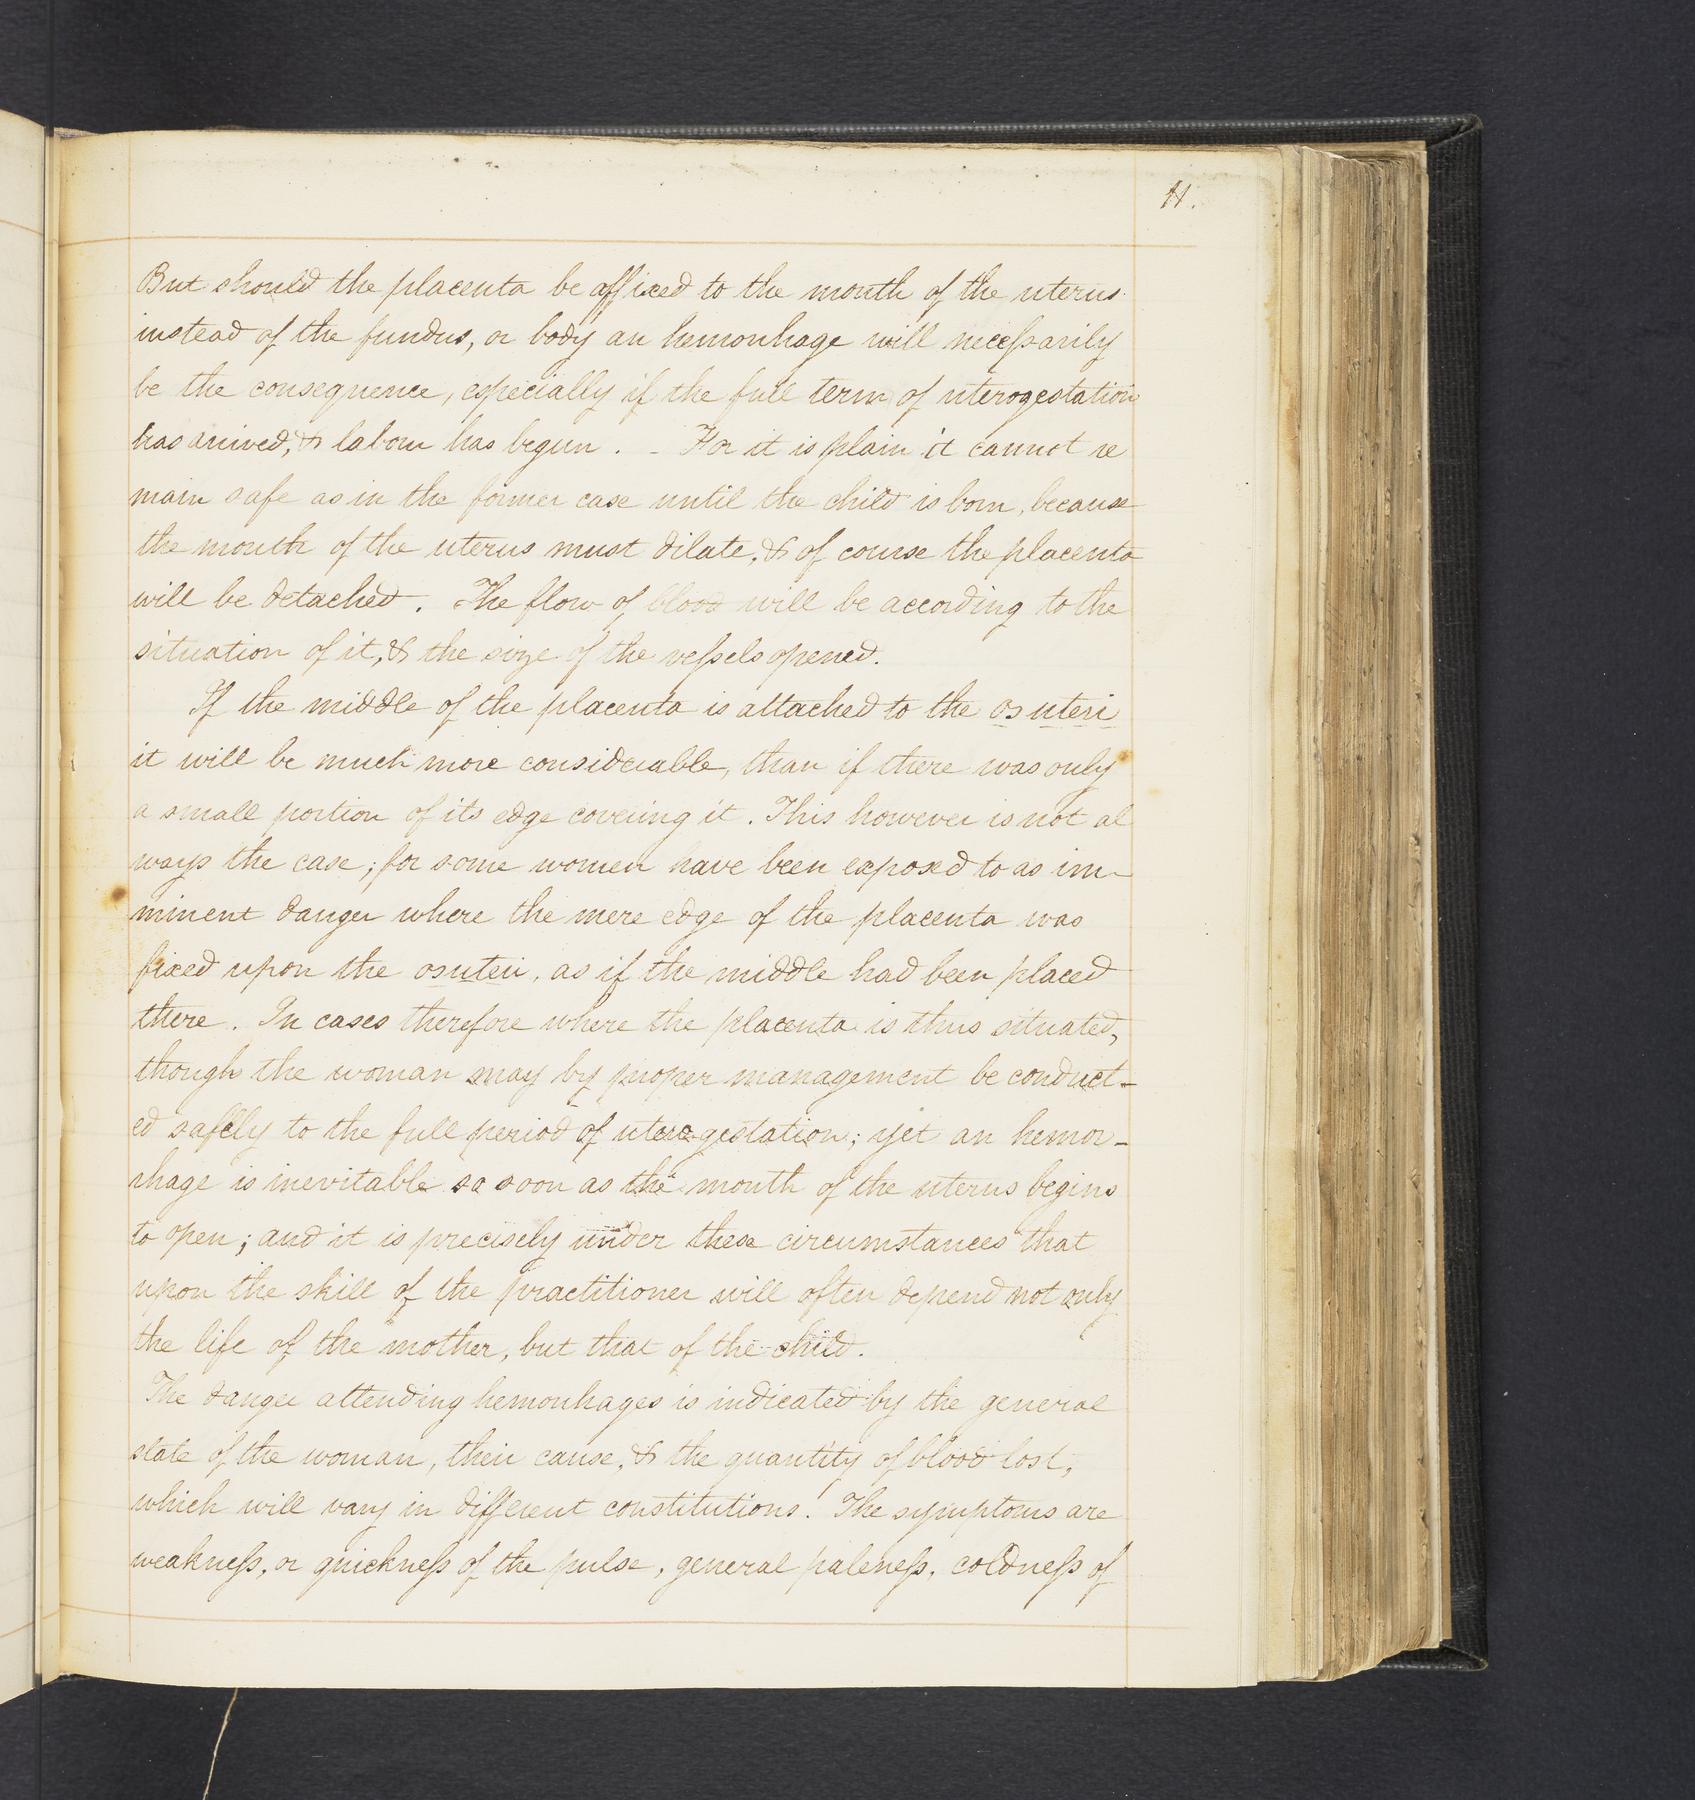 11.
But should the placenta be affixed to the mouth of the uterus
instead of the fundus, or body an hemorrhage will necessarily
be the consequence, especially if the full term of uterogestation
has arrived, & labour has begun. - For it is plain it cannot re
main safe as in the former case until the child is born, because
the mouth of the uterus must dilate, & of course the placenta
will be detached. The flow of blood will be according to the
situation of it, & the size of the vessels opened.
If the middle of the placenta is attached to the os uteri
it will be much more considerable, than if there was only
a small portion of its edge covering it. This however is not al
ways the case; for some women have been exposed to as im-
minent danger where the mere edge of the placenta was
fixed upon the os uteri, as if the middle had been placed
there. In cases therefore where the placenta is thus situated,
though the woman may by proper management be conduct-
ed safely to the full period of utero gestation; yet an hemor-
rhage is inevitable so soon as the mouth of the uterus begins
to open; and it is precisely under these circumstances that
upon the skill of the practitioner will often depend not only
the life of the mother, but that of the child.
The danger attending hemorrhages is indicated by the general
state of the woman, their cause, & the quantity of blood lost,
which will vary in different constitutions. The symptoms are
weakness, or quickness of the pulse, general paleness, coldness of